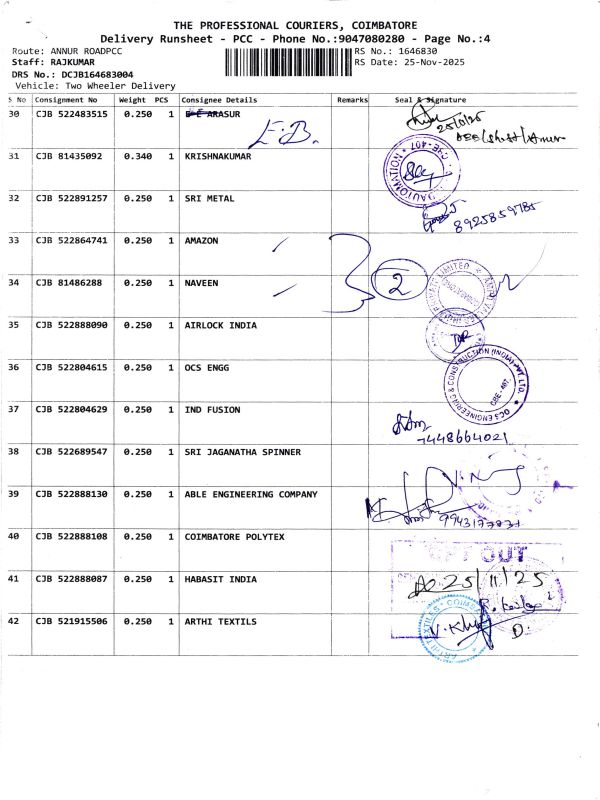 THE PROFESSIONAL COURIERS, COIMBATORE
Delivery Runsheet - PCC - Phone No.:9047080280 - Page No.:4
Route: ANNUR ROADPCC RS No.: 1646830
Staff: RAJKUMAR RS Date: 25-Nov-2025
DRS No.: DCJB164683004
Vehicle: Two Wheeler Delivery
S No Consignment No Weight PCS Consignee Details Remarks Seal & Signature
30 CJB 522483515 0.250 1 ARASUR
E.B.
31 CJB 81435092 0.340 1 KRISHNAKUMAR
AUTOMATION CBE-407
32 CJB 522891257 0.250 1 SRI METAL
8925859785
33 CJB 522864741 0.250 1 AMAZON
2
34 CJB 81486288 0.250 1 NAVEEN
35 CJB 522888090 0.250 1 AIRLOCK INDIA
36 CJB 522804615 0.250 1 OCS ENGG
OCS ENGINEERING & CONSTRUCTION (INDIA) PVT. LTD. CBE - 407.
37 CJB 522804629 0.250 1 IND FUSION
7448664021
38 CJB 522689547 0.250 1 SRI JAGANATHA SPINNER
39 CJB 522888130 0.250 1 ABLE ENGINEERING COMPANY
40 CJB 522888108 0.250 1 COIMBATORE POLYTEX
OUT
41 CJB 522888087 0.250 1 HABASIT INDIA
25/11/25
42 CJB 521915506 0.250 1 ARTHI TEXTILS
ARTHI TEXTILES